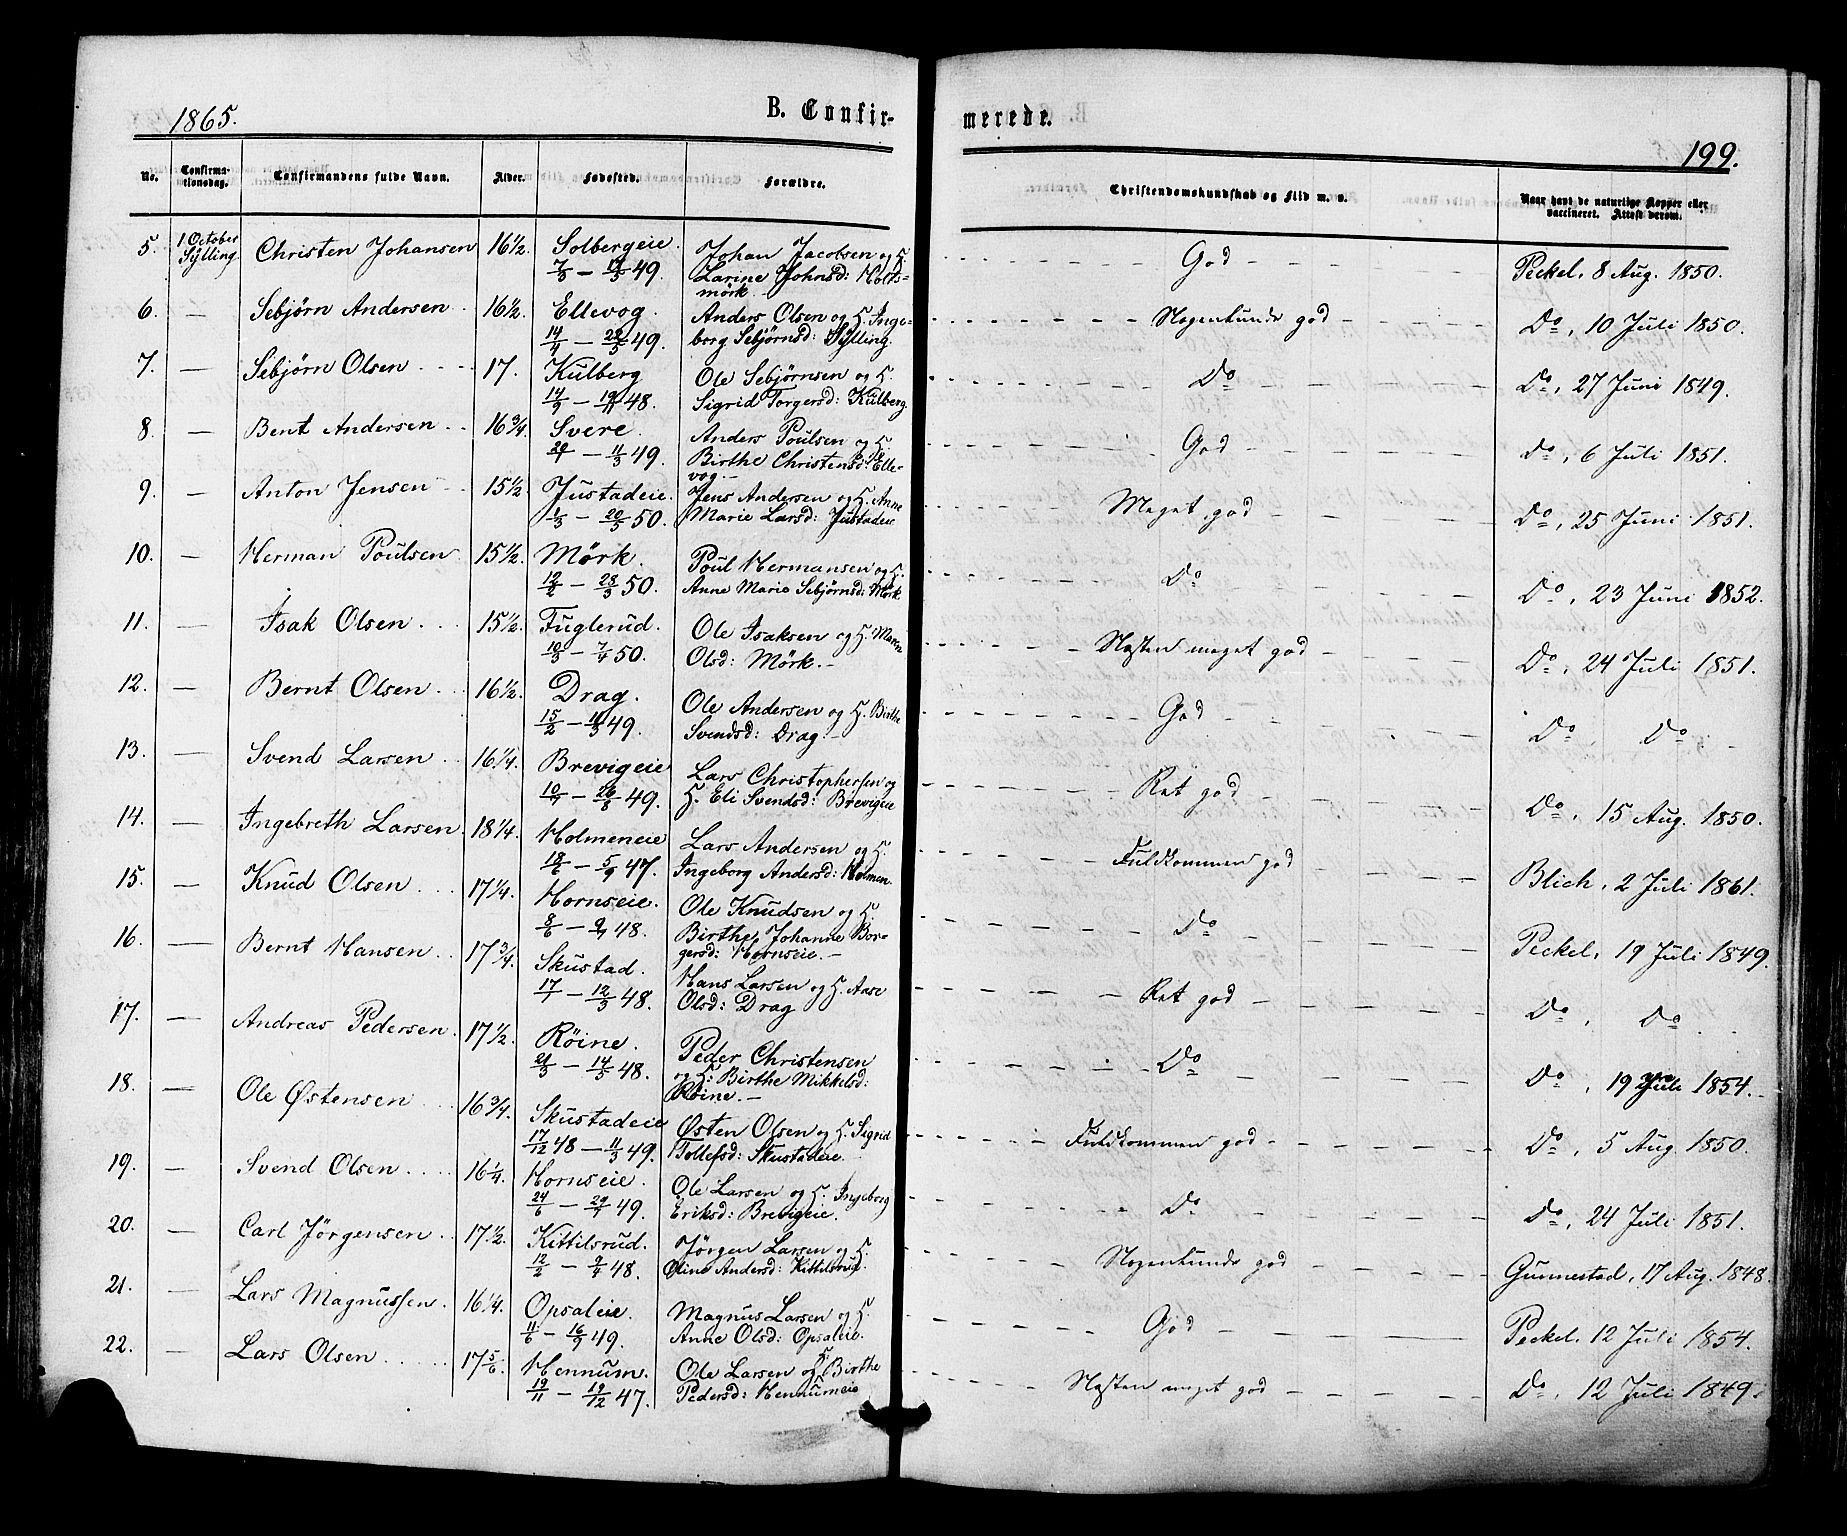 1865.
B. Confir-
merede.
199.
No.
Confirma-
tionsdag.
Confirmandens fulde Navn.
Alder.
Fødested.
Forældre.
Christendomskundskab og Flid m. v.
Naar havt de naturlige Kopper eller
vaccineret. Attest derom.
5. 1 October Sylling Christen Johansen 16 1/2 Solbergeie. Johan Jacobsen og H. God Peckel, 8 Aug. 1850.
Larine Johnsd: Holts-
mörk.
6. — Sebjørn Andersen 16 1/2 Ellevog. Anders Olsen og H. Inge- Nogenlunde god Do, 10 Juli 1850.
14/4 — 22/5 49. borg Sebjørnsd: Sylling.
7. — Sebjørn Olsen 17. Kulberg Ole Sebjørnsen og H. Do Do, 27 Juni 1849.
48. Sigrid Torgersd: Kulberg.
8. — Bent Andersen 16 3/4 Svere. Anders Poulsen og H. God Do, 6 Juli 1851.
— 11/3 49. Birthe Christensd: Elle-
vog.—
9. — Anton Jensen 15 1/2 Justadeie. Jens Andersen og H. Anne Meget god Do, 25 Juni 1851.
1/3 — 20/5 50. Marie Larsd: Justadeie
10. — Herman Poulsen 15 1/2 Mörk. Poul Hermansen og H. Do Do, 23 Juni 1852.
12/2 — 28/3 50. Anne Marie Sebjørnsd: Mörk
11. — Isak Olsen 15 1/2 Fuglerud. Ole Isaksen og H. Maren Næsten meget god Do, 24 Juli 1851.
10/3 — 7/4 50. Olsd: Mörk.—
12. — Bernt Olsen 16 1/2 Drag. Ole Andersen og H. Birthe God Do, Do
15/2 — 11/3 49. Svendsd: Drag.—
13. — Svend Larsen 16 1/4. Brevigeie Lars Christophersen og Ret god Do, 15 Aug. 1850.
49. H. Eli Svendsd: Brevigeie
14. — Ingebreth Larsen 18 1/4. Holmeneie Lars Andersen og H. Fuldkommen god Blich, 2 Juli 1861.
18/6 — 5/9 47. Ingeborg Andersd: Holmen.
15. — Knud Olsen 17 1/4 Hornseie. Ole Knudsen og H. Do Peckel, 19 Juli 1849.
8/6 — 9/7 48. Birthe Johanne Bor-
gersd: Hornseie.—
16. — Bernt Hansen 17 3/4. Skustad. Hans Larsen og H. Aase Ret god Do, Do
17/1 — 12/3 48. Olsd: Drag
17. — Andreas Pedersen 17 1/2 Röine. Peder Christensen Do Do, 19 Juli 1854.
21/3 — 14/5 48. og H: Birthe Mikkelsd:
Röine.—
18. — Ole Østensen 16 3/4. Skustadeie Østen Olsen og H. Sigrid Fuldkommen god Do, 5 Aug. 1850.
17/12 48 — 11/3 49. Tollefsd: Skustadeie.
19. — Svend Olsen 16 1/4 Hornseie. Ole Larsen og H. Ingeborg Do Do, 24 Juli 1851.
24/6 — 29/7 49. Eriksd: Brevigeie.
20. — Carl Jörgensen 17 1/2. Kittilsrud. Jörgen Larsen og H. Nogenlunde god Gunnestad, 17 Aug. 1848
12/2 — 9/4 48. Oline Andersd: Kittilsrud.
21. — Lars Magnussen 16 1/4. Opsaleie. Magnus Larsen og H. God Peckel, 12 Juli 1854.
11/6 — 16/9 49. Anne Olsd: Opsaleie.
22. — Lars Olsen 17 5/6. Hennum. Ole Larsen og H. Birthe Næsten meget god Do, 12 Juli 1849.
19/11 — 19/12 47. Pedersd: Hennumeie